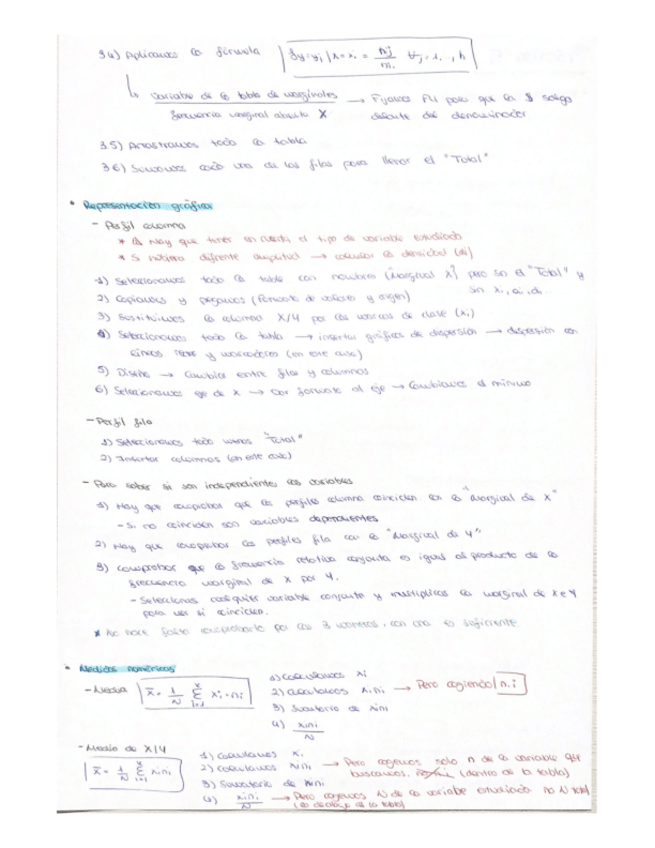 3.4) Aplicamos la fórmula f y=yj | x=xi = nij / ni. ∀j=1...,h
variable de la tabla de marginales / frecuencia marginal absoluta X → Fijamos F4 para que la $ salga delante del denominador
3.5) Arrastramos toda la tabla
3.6) Sumamos cada una de las filas para llevar el "Total"
• Representación gráfica
- Perfil columna
* Hay que tener en cuenta el tipo de variable estudiada
* Si hubiera diferente amplitud → calcular la densidad (di)
1) Seleccionamos toda la tabla con nombres (Marginal X) pero sin el "Total" y sin xi, ai, di...
2) Copiamos y pegamos (formato de valores y origen)
3) Sustituimos la columna X/Y por las marcas de clase (xi)
4) Seleccionamos toda la tabla → insertar gráficos de dispersión → dispersión con
líneas rectas y marcadores (en este caso)
5) Diseño → Cambiar entre filas y columnas
6) Seleccionamos eje de X → Dar formato al eje → Cambiamos el mínimo
- Perfil fila
1) Seleccionamos todo menos "Total"
2) Insertar columnas (en este caso)
- Para saber si son independientes las variables
1) Hay que comprobar que los perfiles columna coinciden con la "Marginal de X"
- Si no coinciden son variables dependientes
2) Hay que comprobar los perfiles fila con la "Marginal de Y"
3) Comprobar que la frecuencia relativa conjunta es igual al producto de la
frecuencia marginal de X por Y.
- Seleccionas cualquier variable conjunta y multiplicas la marginal de X e Y
para ver si coinciden.
* No hace falta comprobarlo por las 3 maneras, con una es suficiente
• Medidas numéricas
- Media x̄ = 1/N Σ xi·ni
1) Calculamos xi
2) Calculamos xi·ni → Pero cogiendo n.i
3) Sumatorio de xini
4) xini / N
- Media de X/Y x̄ = 1/N Σ xini
1) Calculamos xi
2) Calculamos xini → Pero cogemos solo n de la variable que
buscamos, (dentro de la tabla)
3) Sumatorio de xini
4) xini / N → Pero cogemos N de la variable estudiada no N total
(lo de abajo de la tabla)